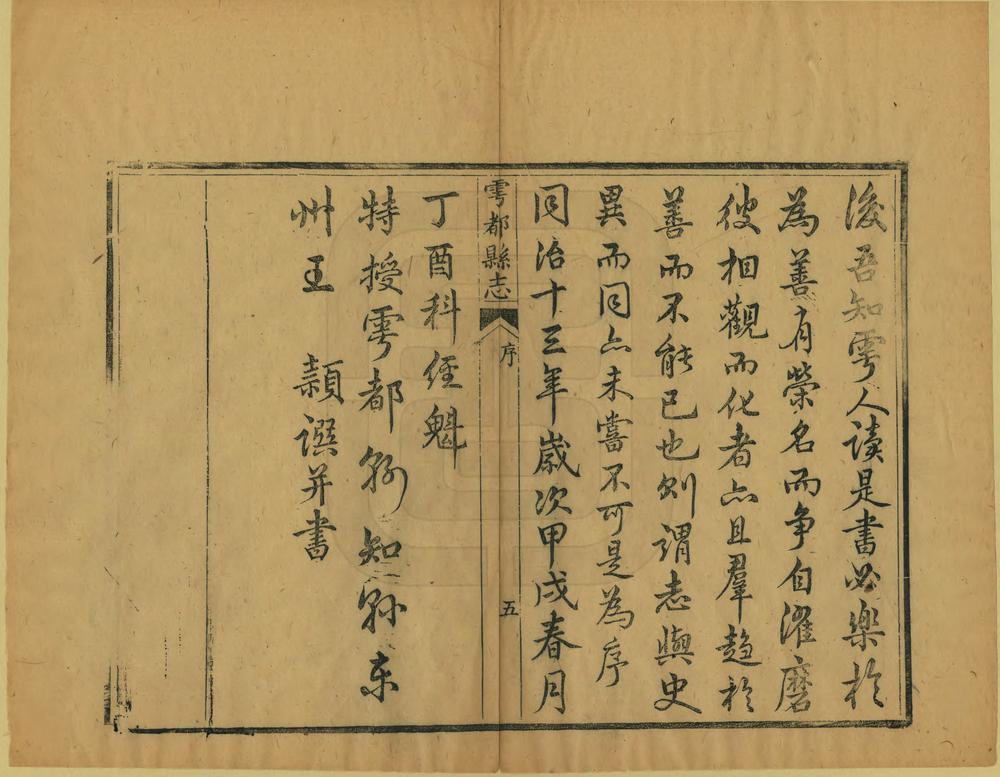 後吾知雩人读是書必樂於
為善有榮名而争自濯磨
彼相觀而化者亦且羣趋於
善而不能已也则謂志與史
異而同亦未嘗不可是為序
同治十三年歲次甲戌春月
雩都縣志
序
五
丁酉科经魁
特授雩都縣知縣东
州王 頴譔并書